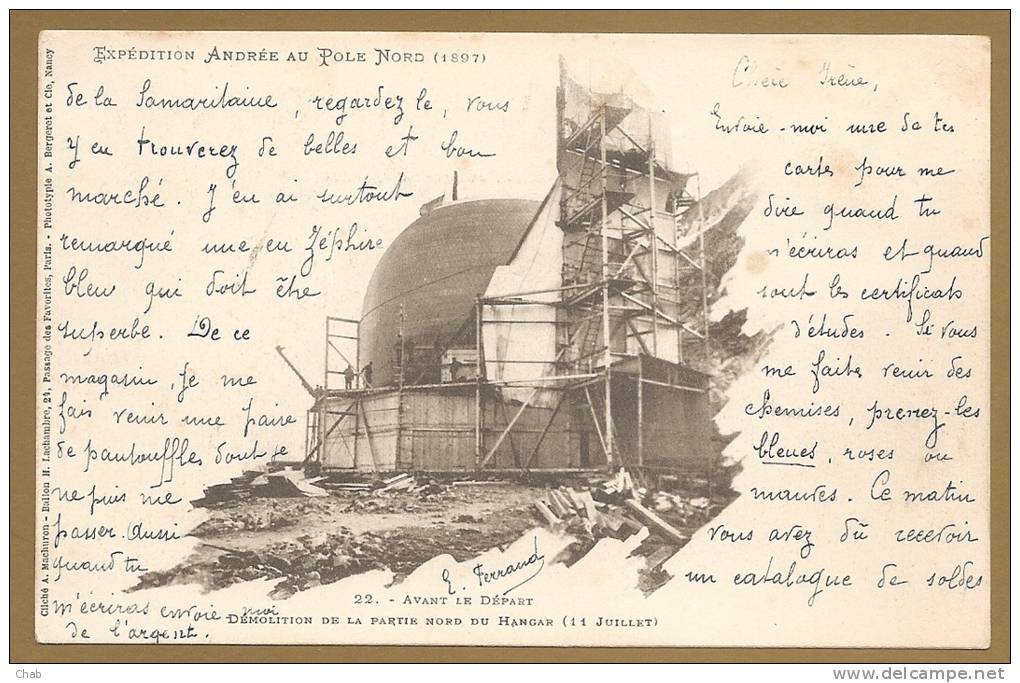 EXPÉDITION ANDRÉE AU POLE NORD (1897)
Chère Irène,
Envoie-moi une de tes
carte pour me
dire quand tu
m'écriras et quand
sont les certificats
d'études. Si vous
me faites venir des
chemises, prenez-les
bleues, roses ou
mauves. Ce matin
vous avez dû recevoir
un catalogue de soldes
de la Samaritaine, regardez le, vous
y en trouverez de belles et bon
marché. J'en ai surtout
remarqué une en Zéphire
bleu qui doit être
superbe. De ce
magasin, je me
fais venir une paire
de pantouffles dont je
ne puis me
passer. Aussi
quand tu
m'écriras envoie moi
de l'argent.
E. Ferrand
22. - AVANT LE DÉPART
DÉMOLITION DE LA PARTIE NORD DU HANGAR (11 JUILLET)
Cliché A. Machuron - Ballon H. Lachambre, 24, Passage des Favorites, Paris. - Phototypie A. Bergeret et Cie, Nancy
Chab
www.delcampe.net